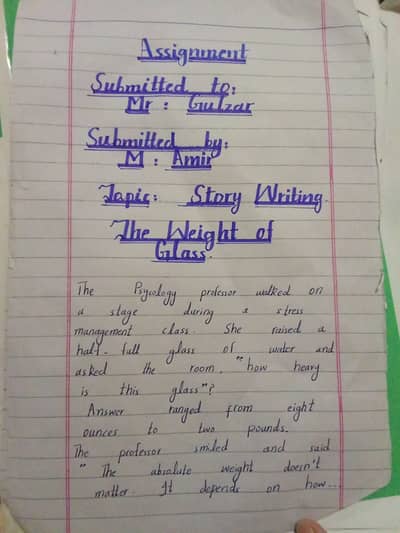 Assignment
Submitted to:
Mr : Gulzar
Submitted by:
M : Amir
Topic: Story Writing.
The Weight of
Glass.
The Psycology professor walked on
a stage during a stress
management class. She raised a
half-full glass of water and
asked the room, "how heavy
is this glass"?
Answer ranged from eight
ounces to two pounds.
The professor smiled and said
" The absolute weight doesn't
matter. It depends on how...